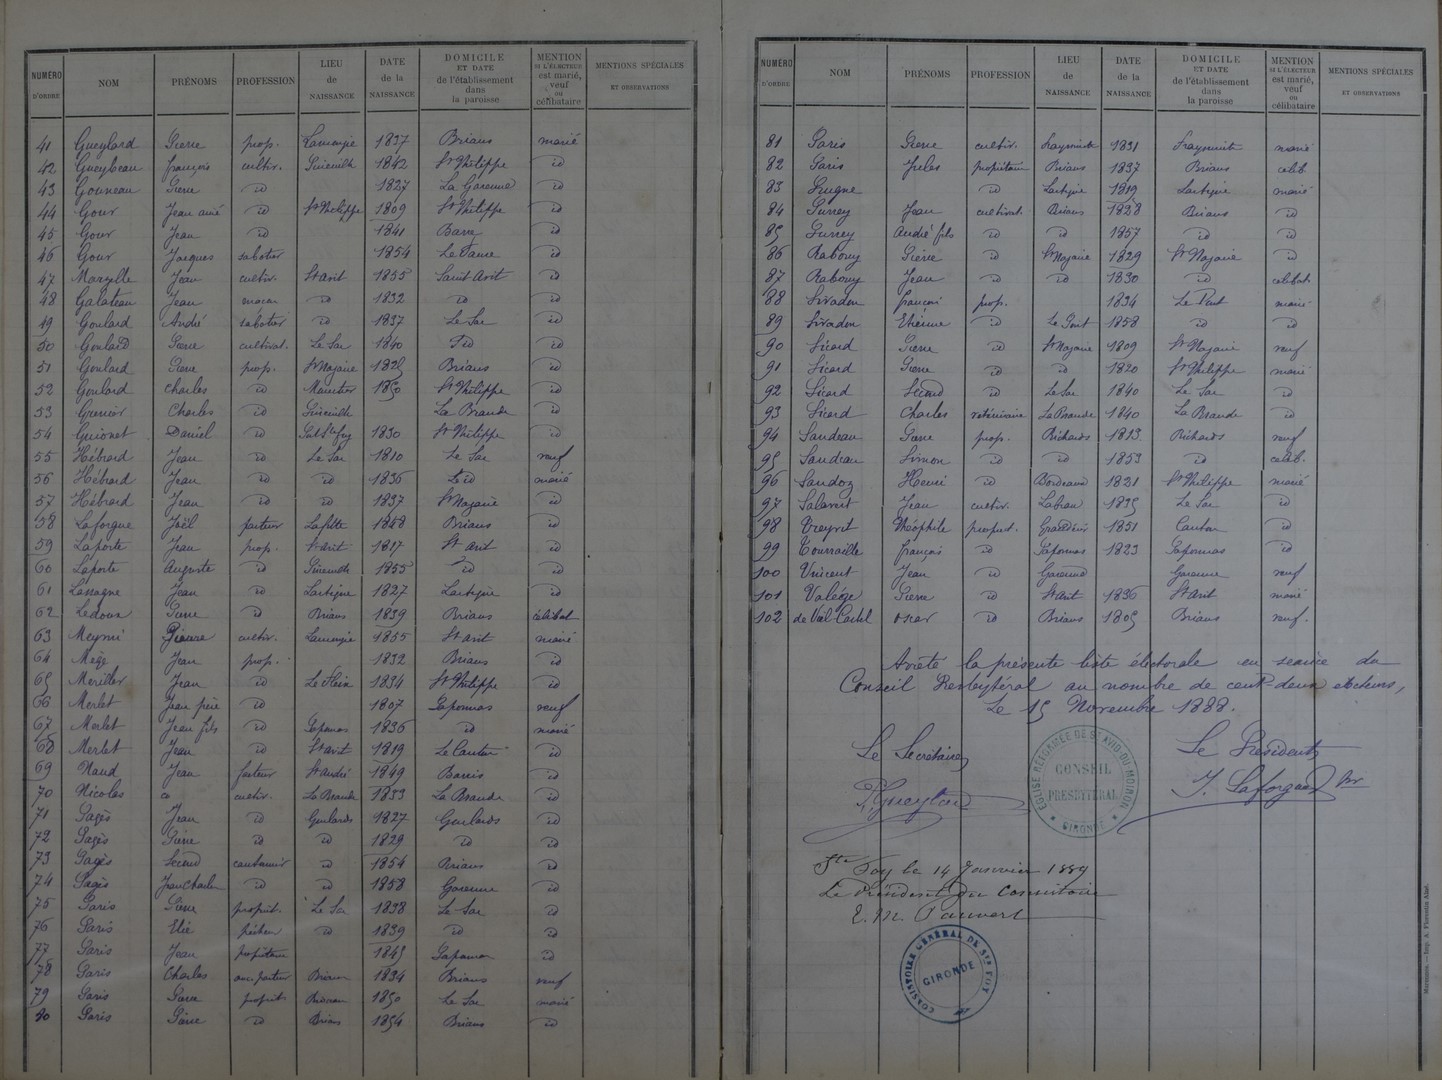 NUMÉRO D'ORDRE NOM PRÉNOMS PROFESSION LIEU de NAISSANCE DATE de la NAISSANCE DOMICILE ET DATE de l'établissement dans la paroisse MENTION SI L'ÉLECTEUR est marié, veuf ou célibataire MENTIONS SPÉCIALES ET OBSERVATIONS
41 Gueylard Pierre prop. Lamonzie 1837 Brians marié
42 Gueyleau françois cultiv. Pineuilh 1842 St Philippe id
43 Gouneau Pierre id 1827 La Garenne id
44 Gour Jean ainé id St Philippe 1809 St Philippe id
45 Gour Jean id 1841 Barre id
46 Gour Jacques sabotier 1854 id
47 Jean cultiv. St Avit 1855 Saint Avit id
48 Galateau Jean macon id 1832 id id
49 Goulard André sabotier id 1837 Le Sac id
50 Goulard Pierre cultivat. Le Sac 1840 id
51 Goulard Pierre prop. St Nazaire 1825 Brians id
52 Goulard Charles id 1850 St Philippe id
53 Grenier Charles id Pineuilh La Braude id
54 Guionet Daniel id 1830 St Philippe id
55 Hébrard Jean id Le Sac 1810 Le Sac veuf
56 Hébrard Jean id id 1836 id marié
57 Hébrard Jean id id 1837 St Nazaire id
58 Laforgue Joël pasteur Lafitte 1848 Brians id
59 Laporte Jean prop. St avit 1817 St avit id
60 Laporte Auguste id Pineuilh 1855 id id
61 Lassagne Jean id Lartigue 1827 Lartigue id
62 Ledoux Pierre id Brians 1839 Brians célibat
63 Meynié Pierre cultiv. Lamonzie 1855 St avit marié
64 Mège Jean prop. 1832 Brians id
65 Jean id 1834 St Philippe id
66 Merlet Jean père id 1807 Laponnas veuf
67 Merlet Jean fils id 1836 id marié
68 Merlet Jean id St avit 1819 id
69 Naud Jean facteur St André 1849 id
70 Nicolas cultiv. La Braude 1833 La Braude id
71 Pagès Jean id Goulards 1827 Goulards id
72 Pagès Pierre id id 1829 id id
73 Pagès Second cantonnier id 1854 Brians id
74 Pagès Jean Charles id id 1858 Garenne id
75 Paris Pierre propriét. Le Sac 1838 Le Sac id
76 Paris Elie pêcheur id 1839 id id
77 Paris Jean propriétaire 1845 id
78 Paris Charles Brians 1834 Brians veuf
79 Paris Pierre propriét. 1850 Le Sac marié
80 Paris Pierre id Brians 1854 Brians id
NUMÉRO D'ORDRE NOM PRÉNOMS PROFESSION LIEU de NAISSANCE DATE de la NAISSANCE DOMICILE ET DATE de l'établissement dans la paroisse MENTION SI L'ÉLECTEUR est marié, veuf ou célibataire MENTIONS SPÉCIALES ET OBSERVATIONS
81 Paris Pierre cultiv. 1831 marié
82 Paris Jules propriétaire Brians 1837 Brians célib.
83 id Lartigue 1819 Lartigue marié
84 Jean cultivat. Brians 1828 Brians id
85 André fils id id 1857 id id
86 Rabouy Pierre id St Nazaire 1829 St Nazaire id
87 Rabouy Jean id id 1830 id célibat
88 Sivadon françois prop. 1834 Le Pont marié
89 Sivadon Etienne id Le Pont 1858 id id
90 Sicard Pierre id St Nazaire 1809 St Nazaire veuf
91 Sicard Pierre id id 1820 St Philippe marié
92 Sicard Second id Le Sac 1840 Le Sac id
93 Sicard Charles vétérinaire La Braude 1840 La Braude id
94 Sandeau Pierre prop. Richards 1813 Richards veuf
95 Sandeau Simon id id 1853 id célib.
96 Sandoz Henri id Bordeaux 1821 St Philippe marié
97 Jean cultiv. 1835 Le Sac id
98 Treyrit Théophile propriet. 1851 id
99 Tourraille françois id Laponnas 1823 Laponnas id
100 Vincent Jean id Garenne Garenne veuf
101 Valége Pierre id St Avit 1836 St Avit marié
102 de Val Castel oscar id Brians 1805 Brians veuf.
Arrêté la présente liste électorale en séance du
Conseil Presbytéral au nombre de cent-deux électeurs,
Le 15 Novembre 1888.
Le Secrétaire, Le Président,
J. Laforgue
EGLISE RÉFORMÉE DE ST AVID-DU-MOIRON
CONSEIL PRESBYTÉRAL
GIRONDE
Ste Foy le 14 Janvier 1889
Le Président du Consistoire
CONSISTOIRE GÉNÉRAL DE STE FOY
GIRONDE
Marmande. — Imp. A. Florentin Aîné.